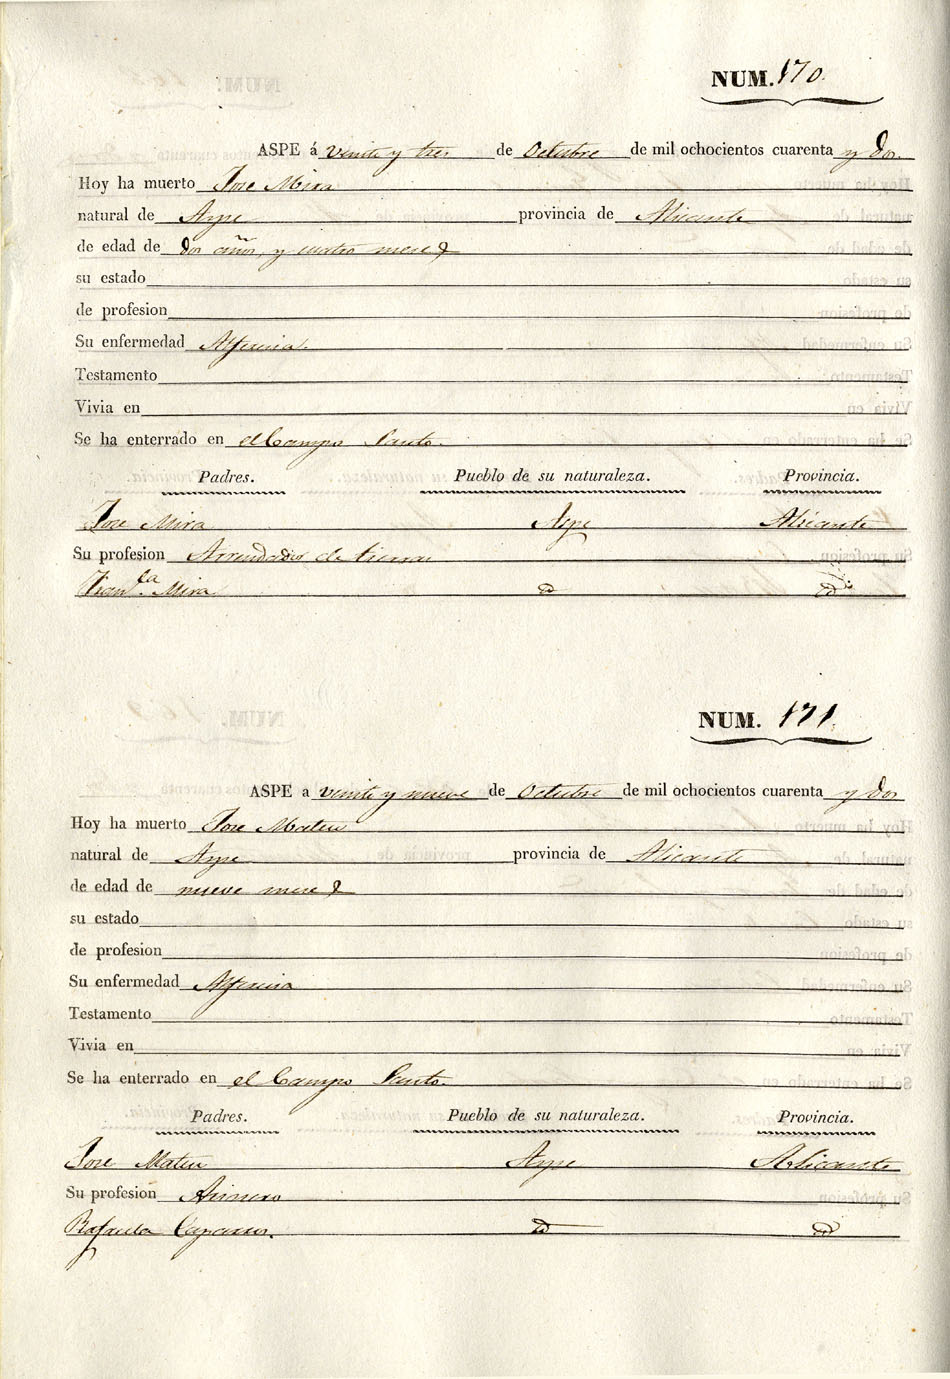 NUM. 170.
ASPE á veinte y tres de Octubre de mil ochocientos cuarenta y dos.
Hoy ha muerto Jose Mira
natural de Aspe provincia de Alicante
de edad de dos años, y cuatro meses
su estado
de profesion
Su enfermedad Alferecia.
Testamento
Vivia en
Se ha enterrado en el Campo Santo.
Padres. Pueblo de su naturaleza. Provincia.
Jose Mira Aspe Alicante
Su profesion Arrendador de tierras
Fran.ca Mira id id
NUM. 171.
ASPE a veinte y nueve de Octubre de mil ochocientos cuarenta y dos
Hoy ha muerto Jose Mateu
natural de Aspe provincia de Alicante
de edad de nueve meses
su estado
de profesion
Su enfermedad Alferecia
Testamento
Vivia en
Se ha enterrado en el Campo Santo.
Padres. Pueblo de su naturaleza. Provincia.
Jose Mateu Aspe Alicante
Su profesion Arriero
Rafaela id id